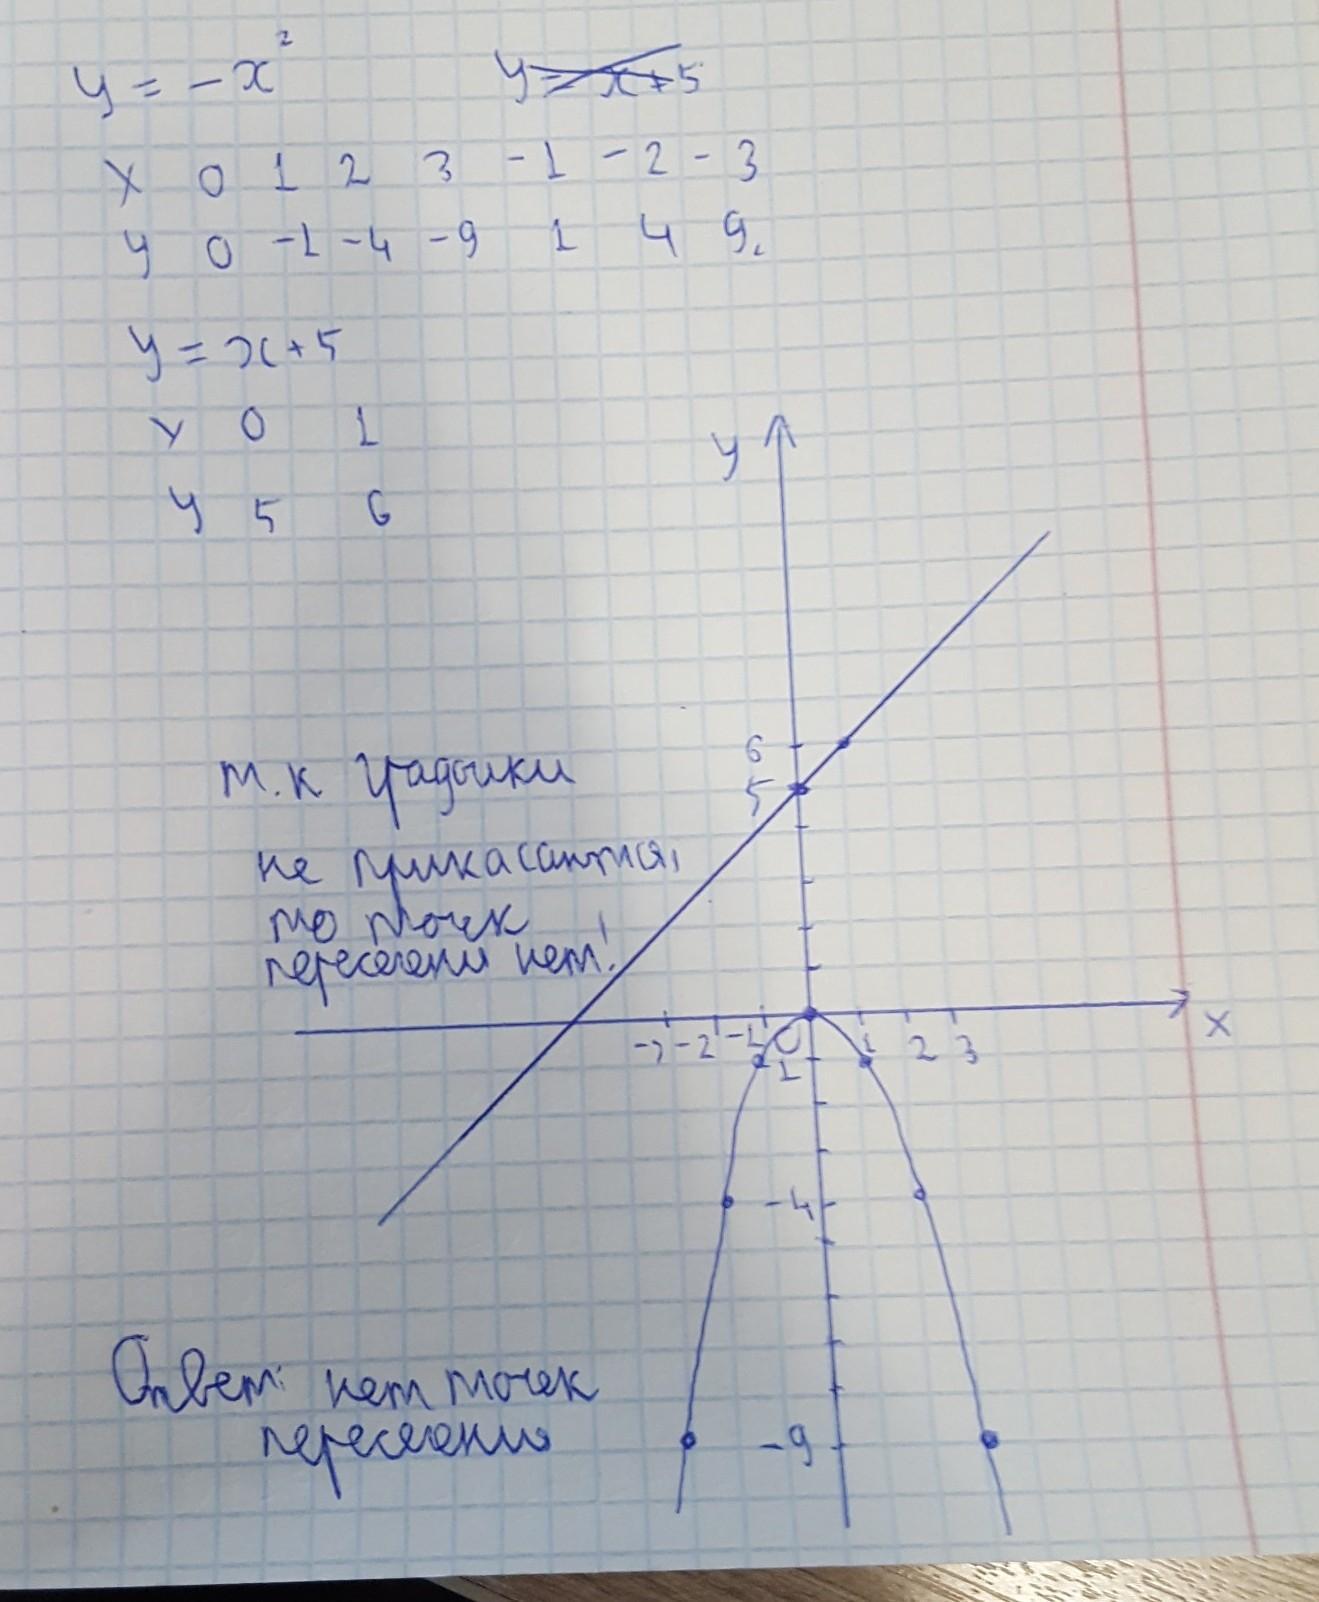 y = -x² y = x+5
x 0 1 2 3 -1 -2 -3
y 0 -1 -4 -9 1 4 9.
y = x+5
x 0 1
y 5 6
y
6
5
т.к графики
не прикасаются,
то точек
пересечени нет!
-3 -2 -1 0 1 2 3 x
-1
-4
-9
Ответ: нет точек
пересечения